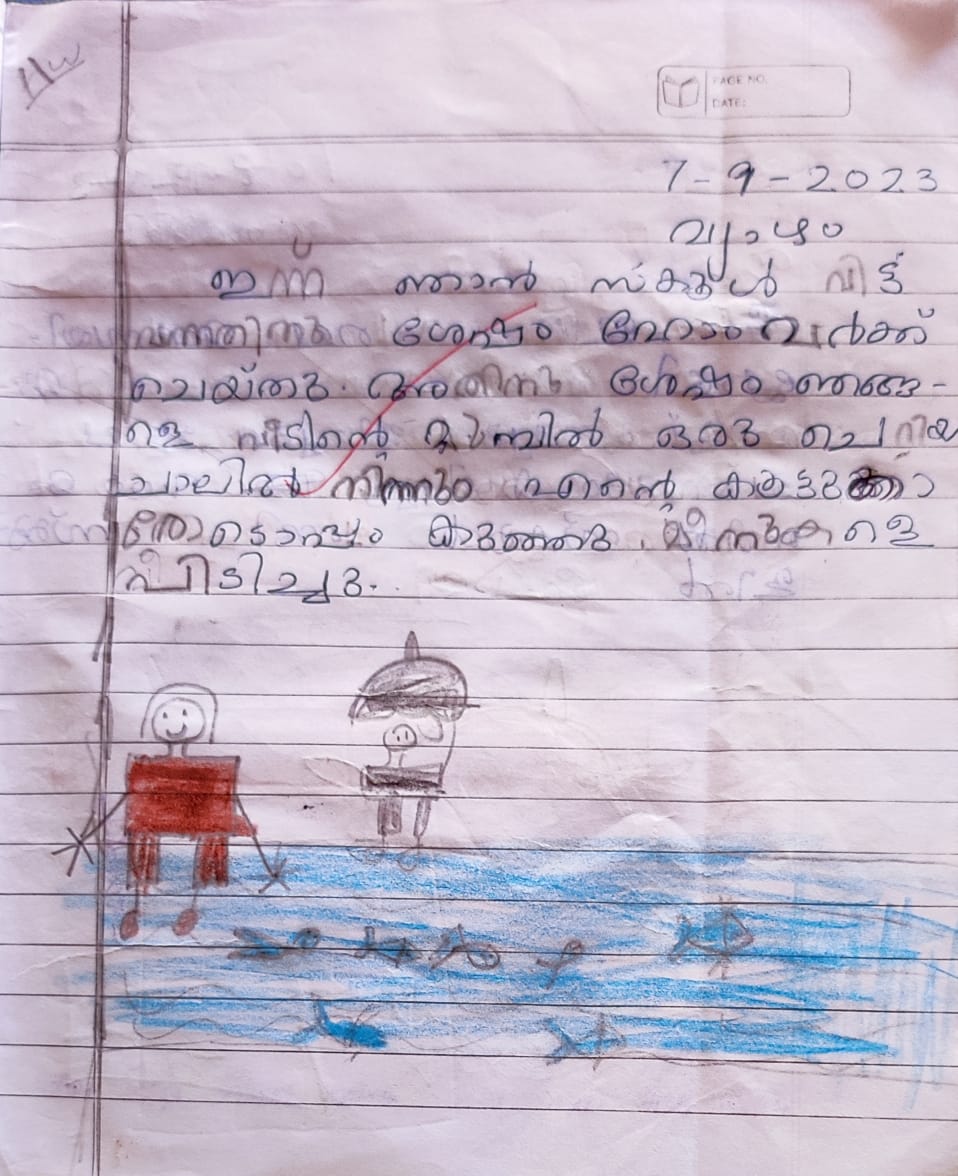 HW
PAGE NO.
DATE:
7-9-2023
വ്യാഴം
ഇന്ന് ഞാൻ സ്കൂൾ വിട്ട്
വന്നതിനു ശേഷം ഹോം വർക്ക്
ചെയ്തു. അതിനു ശേഷം ഞങ്ങ-
ളെ വീടിന്റെ മുമ്പിൽ ഒരു ചെറിയ
ചാലിൽ നിന്നും എന്റെ കൂട്ടുക്കാ
രോടൊപ്പം കുഞ്ഞു മീനുകളെ
പിടിച്ചു.